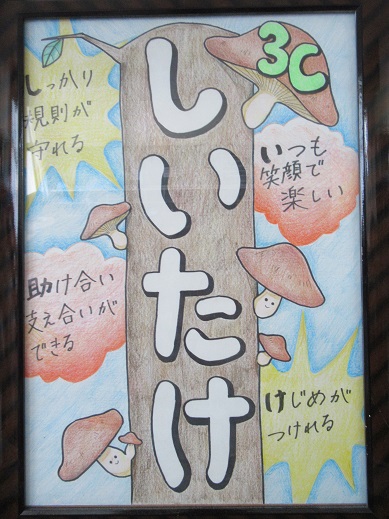 3C
しいたけ
しっかり
規則が
守れる
いつも
笑顔で
楽しい
助け合い
支え合いが
できる
けじめが
つけれる